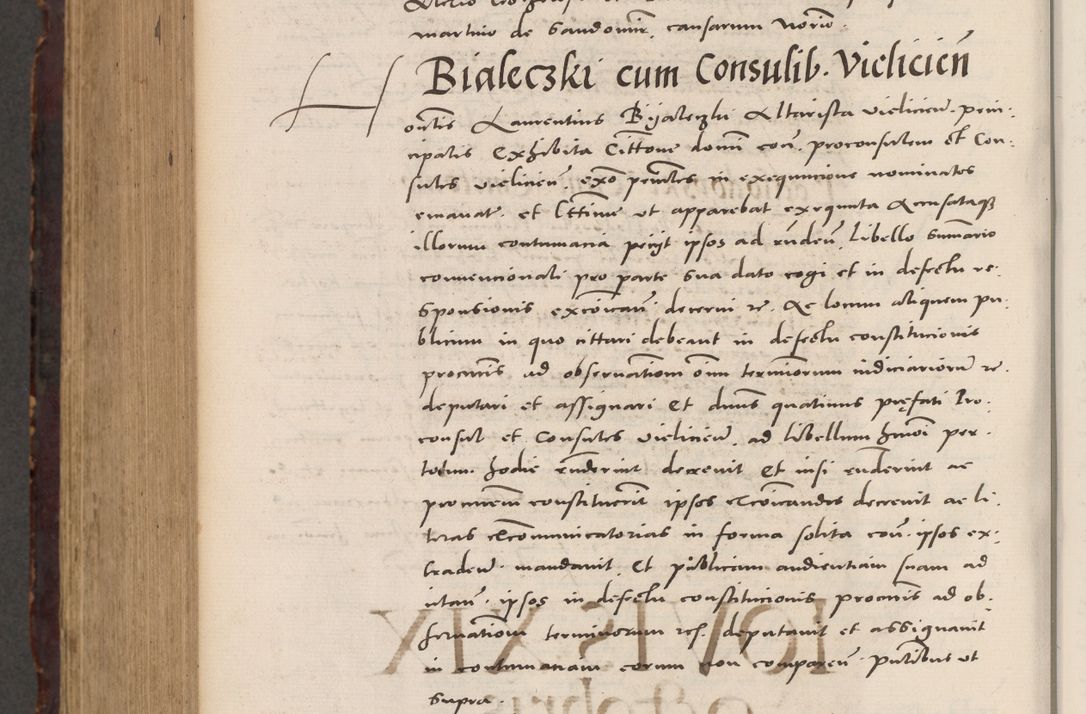 martino de Sandomir. causarum Notrio.
Bialeczki cum Consulib. Vielicień
Laurentius Bijaleczki Altarista vielicień. prin-
cipalis Exhibita Cittone domini con. proconsulem et Con-
sules vielicień. exo in exequucione nominatos
emanat. et ut apparebat exequuta Accusataque
illorum contumacia petijt ipsos ad rńdeń. Libello Sumario
convencionali pro parte sua dato cogi et in defectu re-
sponsionis excoicań. decerni re. Ac locum aliquem pu-
blicum in quo cittari debeant in defectu constitucionis
procuris ad observationem oim terminorum iudiciariorum re.
deputari et assignari Et dnus quatinus pręfati Pro-
consul et Consules vielicień. ad libellum hmoi per
totum hodie rńderint decrevit Et nisi rńderint ac
procurem constituerint ipsos excoicandos decrevit ac li-
teras excommunicatorias in forma solita con. ipsos ex-
tradeń. mandavit. Et publicam audientiam suam ad
citań. ipsos in defectu constitucionis procuris ad ob-
servationem terminorum res. deputavit et assignavit
in contumaciam eorum non compareń. Pntibus ut
supra.